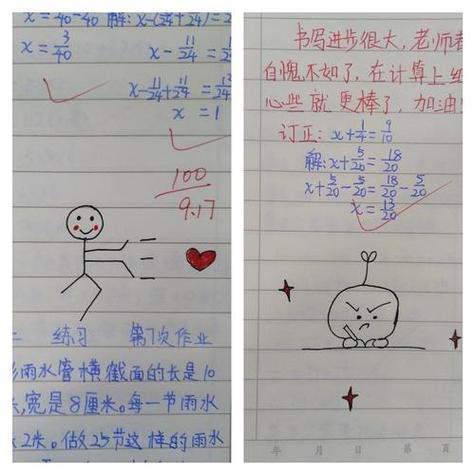 x=40-40
x=3/40
解:
x-11/24=
x-11/24+11/24=
x=1
100
9.17
练习 第7次作业
雨水管横截面的长是10
,宽是8厘米。每一节雨水
2米。做25节这样的雨水
书写进步很大,老师都
自愧不如了,在计算上细
心些就更棒了,加油!
订正:x+1/4=9/10
解:x+5/20=18/20
x+5/20-5/20=18/20-5/20
x=13/20
年 月 日 第 页